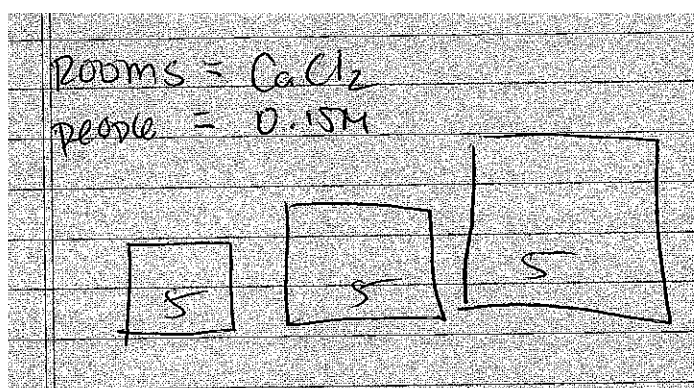 Rooms = CaCl2
people = 0.15M
5 5 5